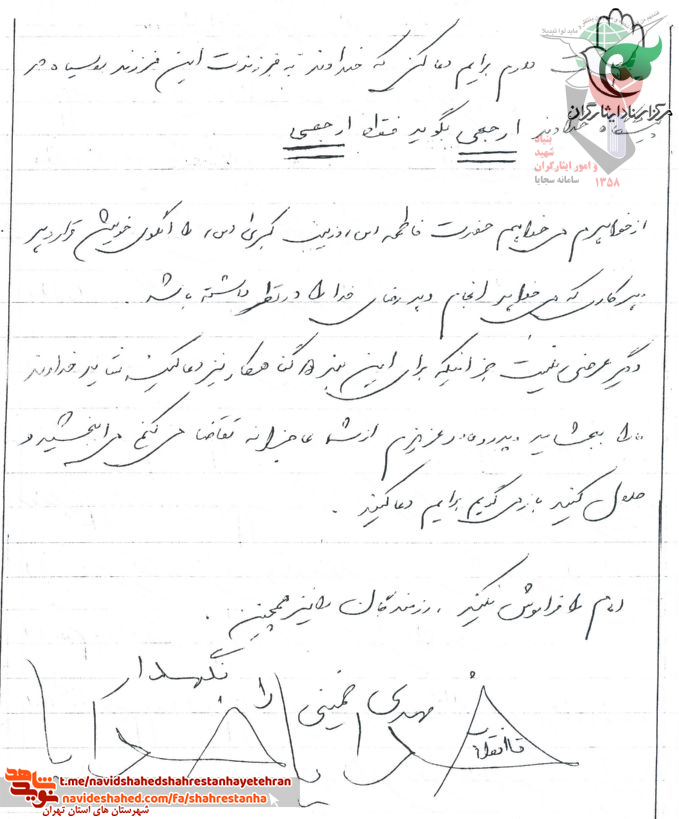 مادرم برایم دعا کن که خداوند به فرزندت این فرزند روسیاه در
پیشگاه خداوند ارجعی بگوید فقط ارجعی
مرکز اسناد ایثارگران
بنیاد
شهید
و امور ایثارگران
سامانه سجایا
۱۳۵۸
از خواهرم می‌خواهم حضرت فاطمه (س)، زینب کبری (س)، را الگوی خویش قرار دهد
هر کاری که می‌خواهد انجام دهد رضای خدا را در نظر داشته باشد .
دیگر عرضی نیست جز اینکه برای این بنده گناهکار نیز دعا کنید شاید خداوند
ما را ببخشاید پدر و مادر عزیزم از شما عاجزانه تقاضا می‌کنم مرا ببخشید و
حلال کنید باز می‌گویم برایم دعا کنید .
امام را فراموش نکنید ، رزمندگان را نیز همچنین .
خدایا خدایا تا انقلاب مهدی خمینی را نگهدار
نوید شاهد
t.me/navidshahedshahrestanhayetehran
navideshahed.com/fa/shahrestanha
شهرستان های استان تهران